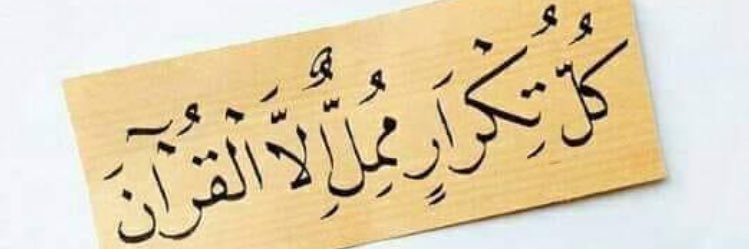 كُلُّ تِكْرَارٍ مُمِلٌّ إِلَّا الْقُرْآنَ